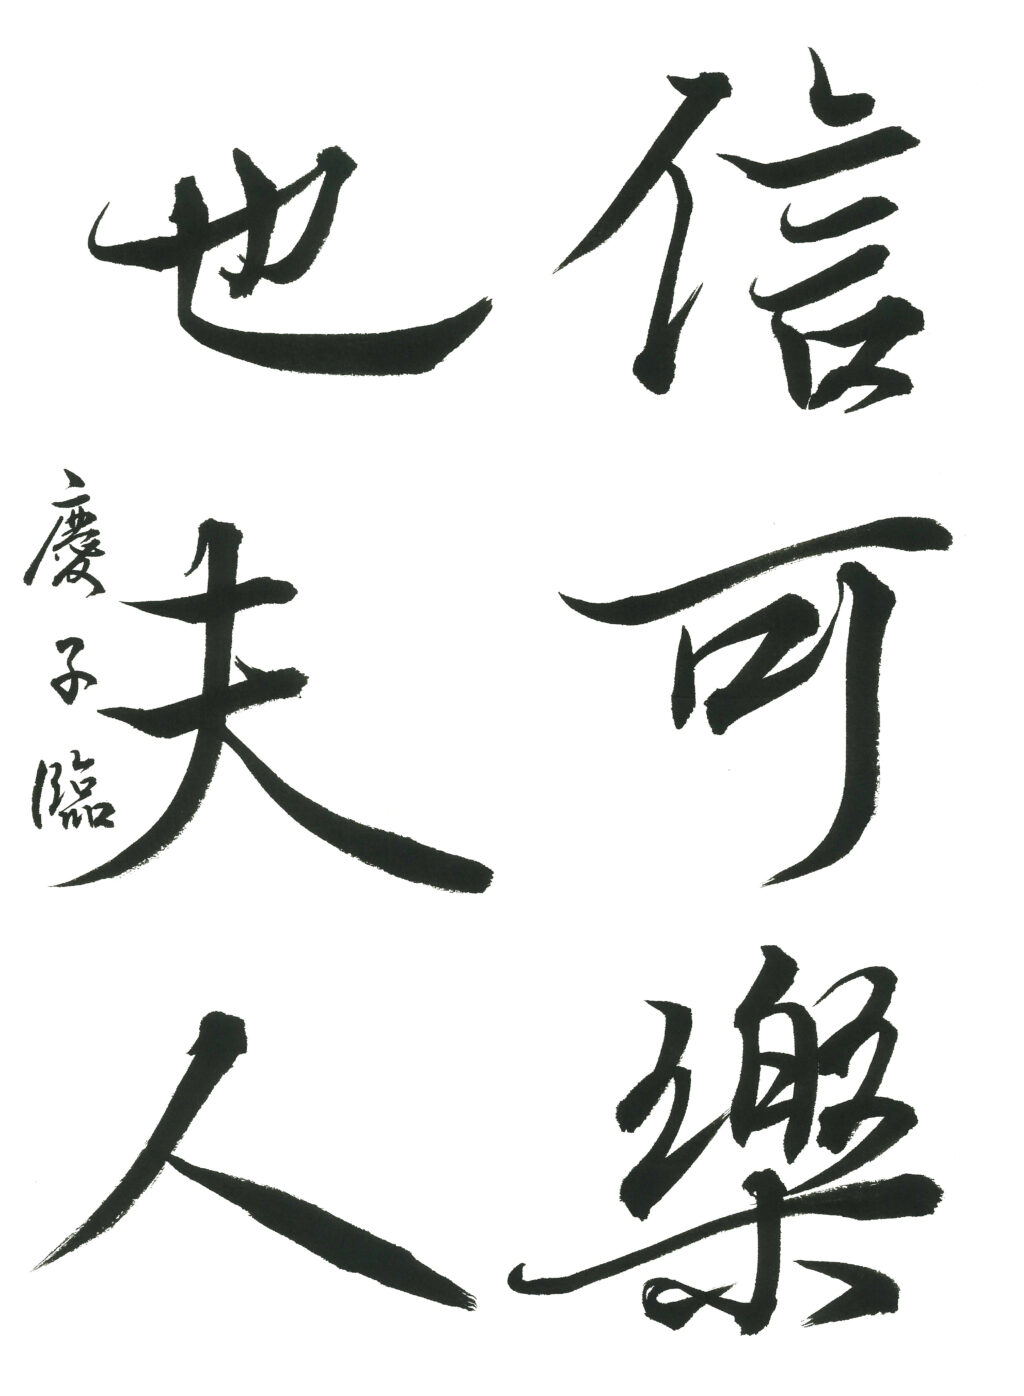 信可樂
也夫人
慶子臨